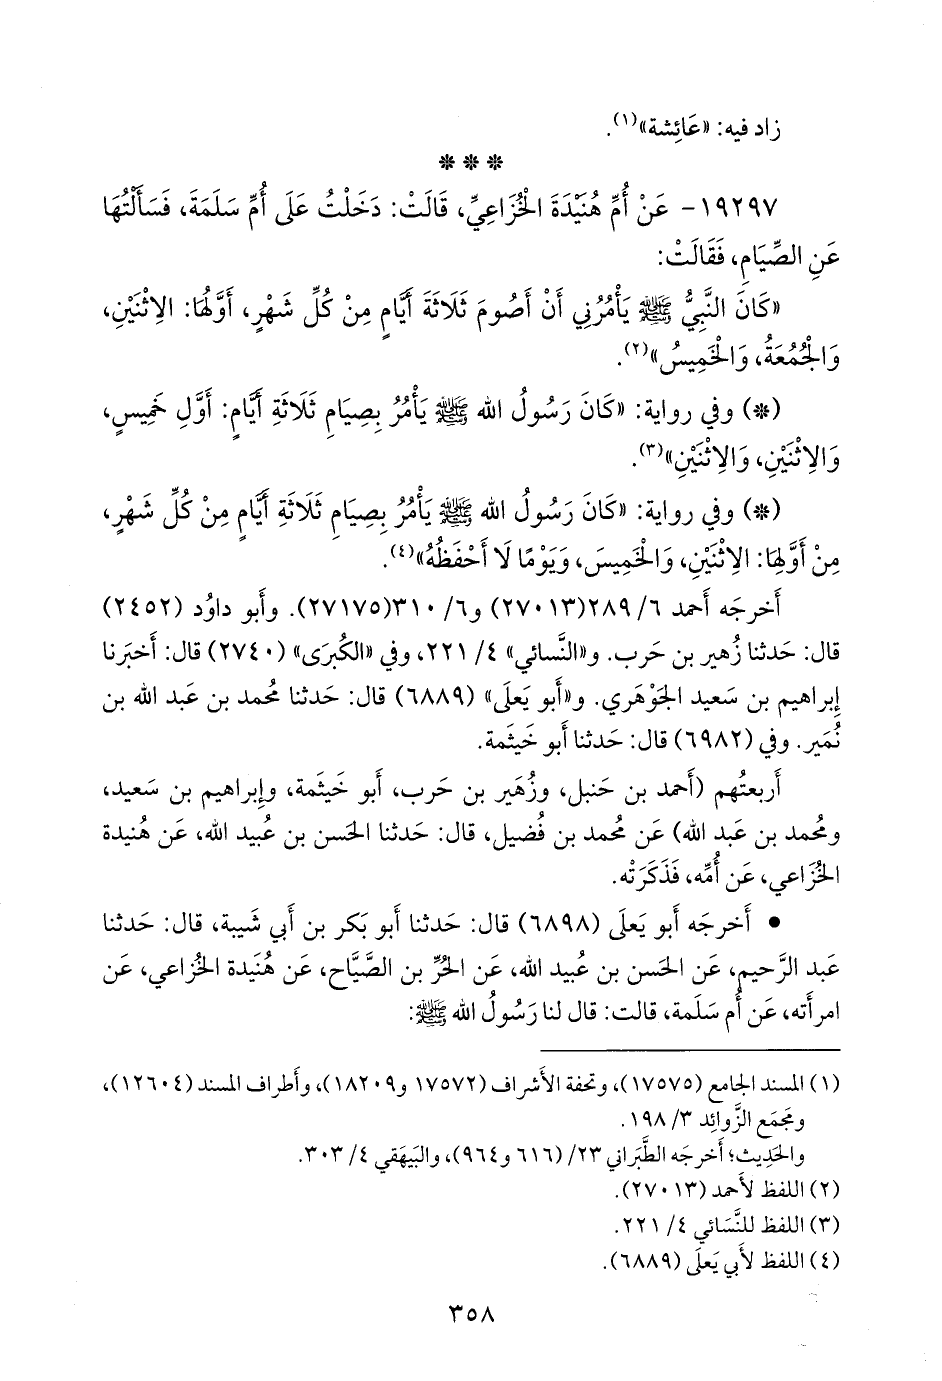 زاد فيه: «عَائِشة»(١).
* * *
١٩٢٩٧- عَنْ أُمِّ هُنَيْدَةَ الْخُزَاعِيِّ، قَالَتْ: دَخَلْتُ عَلَى أُمِّ سَلَمَةَ، فَسَأَلْتُهَا
عَنِ الصِّيَامِ، فَقَالَتْ:
«كَانَ النَّبِيُّ ﷺ يَأْمُرُنِي أَنْ أَصُومَ ثَلَاثَةَ أَيَّامٍ مِنْ كُلِّ شَهْرٍ، أَوَّلُهَا: الِاثْنَيْنِ،
وَالْجُمُعَةُ، وَالْخَمِيسُ»(٢).
(*) وفي رواية: «كَانَ رَسُولُ الله ﷺ يَأْمُرُ بِصِيَامِ ثَلَاثَةِ أَيَّامٍ: أَوَّلِ خَمِيسٍ،
وَالِاثْنَيْنِ، وَالِاثْنَيْنِ»(٣).
(*) وفي رواية: «كَانَ رَسُولُ الله ﷺ يَأْمُرُ بِصِيَامِ ثَلَاثَةِ أَيَّامٍ مِنْ كُلِّ شَهْرٍ،
مِنْ أَوَّلِهَا: الِاثْنَيْنِ، وَالْخَمِيسَ، وَيَوْمًا لَا أَحْفَظُهُ»(٤).
أَخرجَه أَحمد ٦/ ٢٨٩(٢٧٠١٣) و٦/ ٣١٠(٢٧١٧٥). وأَبو داوُد (٢٤٥٢)
قال: حَدثنا زُهير بن حَرب. و«النَّسائي» ٤/ ٢٢١، وفي «الكُبرَى» (٢٧٤٠) قال: أَخبَرنا
إِبراهيم بن سَعيد الجَوْهَري. و«أَبو يَعلَى» (٦٨٨٩) قال: حَدثنا مُحمد بن عَبد الله بن
نُمَير. وفي (٦٩٨٢) قال: حَدثنا أَبو خَيثَمة.
أَربعتُهم (أَحمد بن حَنبل، وزُهَير بن حَرب، أَبو خَيثَمة، وإِبراهيم بن سَعيد،
ومُحمد بن عَبد الله) عَن مُحمد بن فُضيل، قال: حَدثنا الحَسن بن عُبيد الله، عَن هُنيدة
الخُزَاعي، عَن أُمِّه، فَذَكَرَتْه.
• أَخرجَه أَبو يَعلَى (٦٨٩٨) قال: حَدثنا أَبو بَكر بن أَبي شَيبة، قال: حَدثنا
عَبد الرَّحيم، عَن الحَسن بن عُبيد الله، عَن الحُرِّ بن الصَّيَّاح، عَن هُنَيدة الخُزاعي، عَن
امرأَته، عَن أُم سَلَمة، قالت: قال لنا رَسُولُ الله ﷺ:
(١) المسند الجامع (١٧٥٧٥)، وتحفة الأَشراف (١٧٥٧٢ و١٨٢٠٩)، وأَطراف المسند (١٢٦٠٤)،
ومَجمَع الزَّوائِد ٣/ ١٩٨.
والحَدِيث؛ أَخرجَه الطَّبَراني ٢٣/ (٦١٦ و٩٦٤)، والبَيهَقي ٤/ ٣٠٣.
(٢) اللفظ لأَحمد (٢٧٠١٣).
(٣) اللفظ للنَّسَائي ٤/ ٢٢١.
(٤) اللفظ لأَبي يَعلَى (٦٨٨٩).
٣٥٨